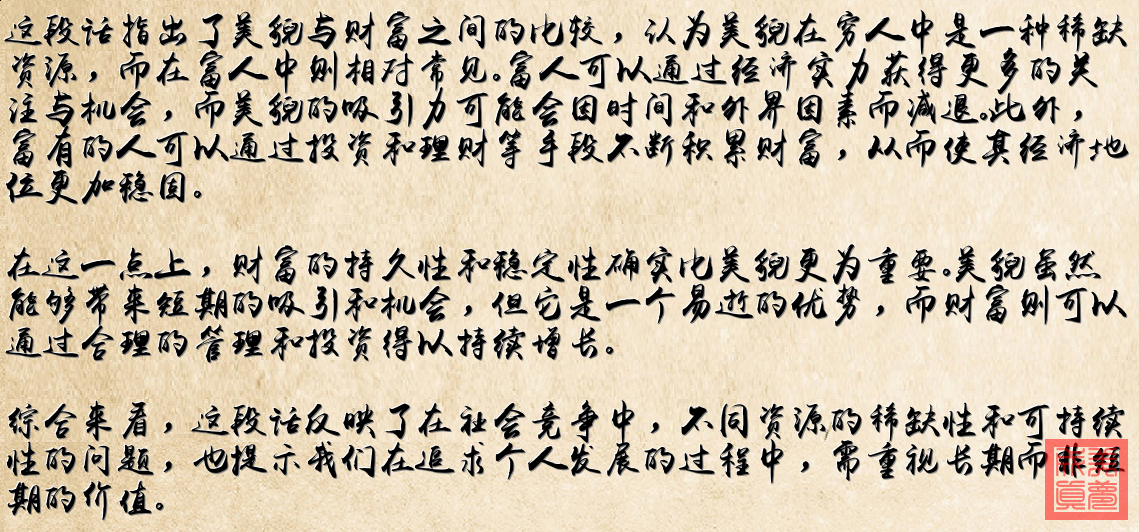 这段话指出了美貌与财富之间的比较，认为美貌在穷人中是一种稀缺
资源，而在富人中则相对常见。富人可以通过经济实力获得更多的关
注与机会，而美貌的吸引力可能会因时间和外界因素而减退。此外，
富有的人可以通过投资和理财等手段不断积累财富，从而使其经济地
位更加稳固。
在这一点上，财富的持久性和稳定性确实比美貌更为重要。美貌虽然
能够带来短期的吸引和机会，但它是一个易逝的优势，而财富则可以
通过合理的管理和投资得以持续增长。
综合来看，这段话反映了在社会竞争中，不同资源的稀缺性和可持续
性的问题，也提示我们在追求个人发展的过程中，需重视长期而非短
期的价值。